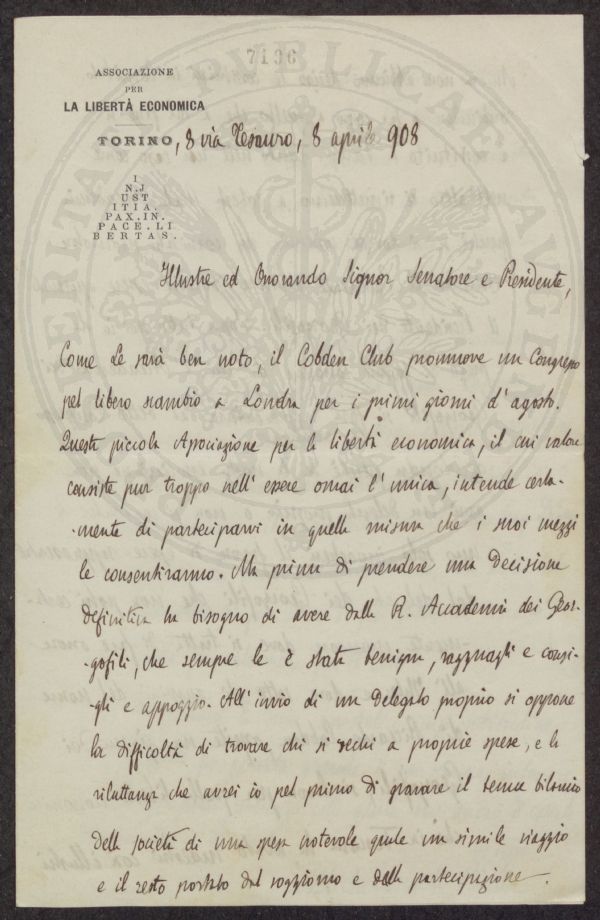 7196
ASSOCIAZIONE
PER
LA LIBERTÀ ECONOMICA
TORINO, 8 via Tesauro, 8 aprile 908
I
N.J
UST
ITIA.
PAX.IN.
PACE.LI
BERTAS.
Illustre ed Onorando Signor Senatore e Presidente,
Come Le sarà ben noto, il Cobden Club promuove un Congresso
pel libero scambio a Londra per i primi giorni d'agosto.
Questa piccola Associazione per la libertà economica, il cui valore
consiste pur troppo nell'essere omai l'unica, intende certa-
-mente di parteciparvi in quella misura che i suoi mezzi
le consentiranno. Ma prima di prendere una decisione
definitiva ha bisogno di avere dalla R. Accademia dei Geor-
-gofili, che sempre le è stata benigna, ragguagli e consi-
-gli e appoggio. All'invio di un delegato proprio si oppone
la difficoltà di trovare chi si rechi a proprie spese, e la
riluttanza che avrei io pel primo di gravare il tenue bilancio
della società di una spesa notevole quale un simile viaggio
e il resto portato dal soggiorno e dalla partecipazione.